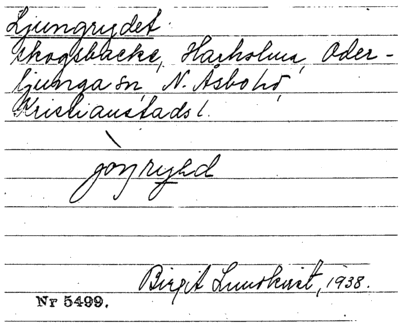 Ljungrydet.
skogsbacke, Harholma, Oder-
ljunga sn N. Åsbo hd,
Kristianstads l.
jòŋryed
Birgit Lundkvist, 1938.
Nr 5499.